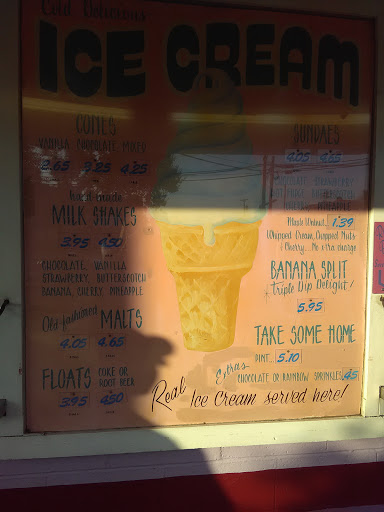 Cold Delicious
ICE CREAM
CONES
VANILLA CHOCOLATE, MIXED
2.65 3.25 4.25
hand made
MILK SHAKES
3.95 4.50
CHOCOLATE, VANILLA
STRAWBERRY, BUTTERSCOTCH
BANANA, CHERRY PINEAPPLE
Old fashioned MALTS
4.05 4.65
FLOATS COKE OR
ROOT BEER
3.95 4.50
SUNDAES
4.05 4.65
CHOCOLATE, STRAWBERRY
1.39
Whipped Cream, Chopped Nuts
& Cherry... No extra charge
BANANA SPLIT
Triple Dip Delight!
5.95
TAKE SOME HOME
PINT... 5.10
Extras
CHOCOLATE OR RAINBOW SPRINKLES .45
Real Ice Cream served here!